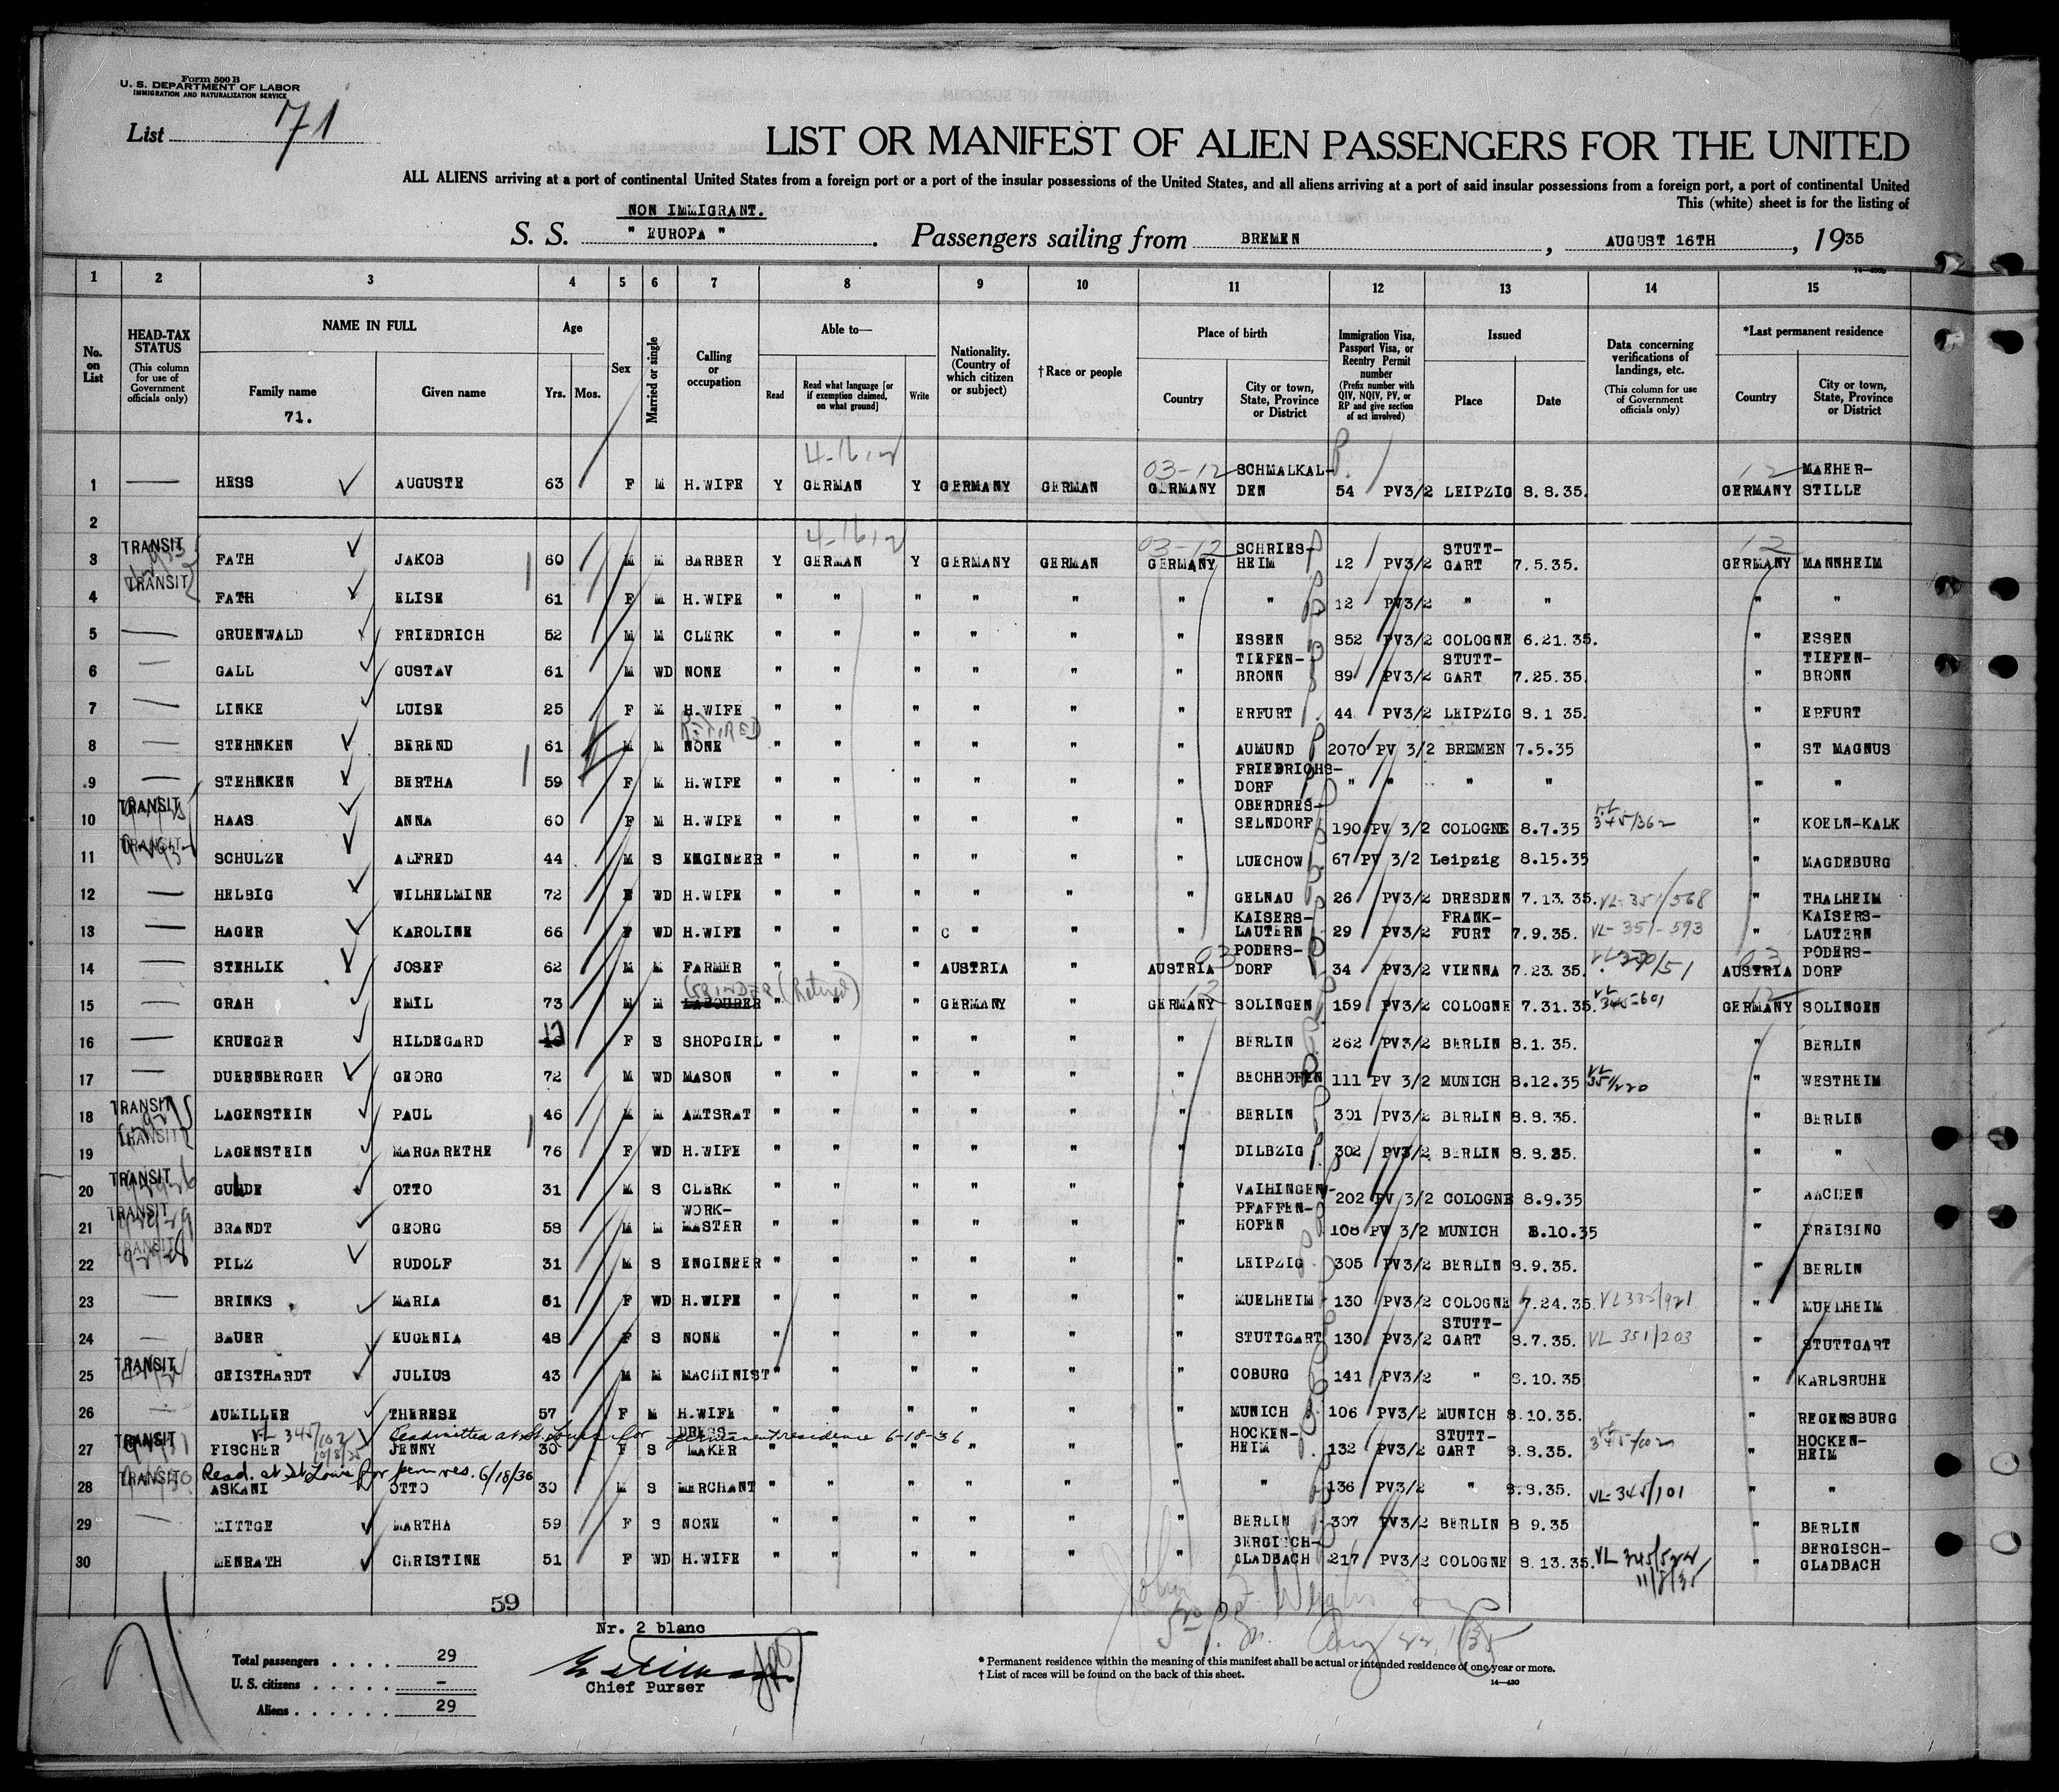 Form 500 B
U. S. DEPARTMENT OF LABOR
IMMIGRATION AND NATURALIZATION SERVICE
List 71
LIST OR MANIFEST OF ALIEN PASSENGERS FOR THE UNITED
ALL ALIENS arriving at a port of continental United States from a foreign port or a port of the insular possessions of the United States, and all aliens arriving at a port of said insular possessions from a foreign port, a port of continental United
This (white) sheet is for the listing of
NON IMMIGRANT.
S. S. " EUROPA " . Passengers sailing from BREMEN , AUGUST 16TH , 1935
1 2 3 4 5 6 7 8 9 10 11 12 13 14 15
No. on List
HEAD-TAX STATUS (This column for use of Government officials only)
NAME IN FULL
Family name 71.
Given name
Age
Yrs. Mos.
Sex
Married or single
Calling or occupation
Able to—
Read
Read what language [or if exemption claimed, on what ground]
Write
Nationality. (Country of which citizen or subject)
† Race or people
Place of birth
Country
City or town, State, Province or District
Immigration Visa, Passport Visa, or Reentry Permit number (Prefix number with QIV, NQIV, PV, or RP and give section of act involved)
Issued
Place
Date
Data concerning verifications of landings, etc. (This column for use of Government officials only)
*Last permanent residence
Country
City or town, State, Province or District
4-16-12 03-12 12
1 — HESS AUGUSTE 63 F M H.WIFE Y GERMAN Y GERMANY GERMAN GERMANY SCHMALKAL-DEN 54 PV3/2 LEIPZIG 8.8.35. GERMANY MAEHER-STILLE
2
4-16-12 03-12 12
3 TRANSIT FATH JAKOB 60 M M BARBER Y GERMAN Y GERMANY GERMAN GERMANY SCHRIES-HEIM 12 PV3/2 STUTT-GART 7.5.35. GERMANY MANNHEIM
4 TRANSIT FATH ELISE 61 F M H.WIFE " " " " " " " 12 PV3/2 " " " "
5 — GRUENWALD FRIEDRICH 52 M M CLERK " " " " " " ESSEN 852 PV3/2 COLOGNE 6.21.35. " ESSEN
6 — GALL GUSTAV 61 M WD NONE " " " " " " TIEFEN-BRONN 89 PV3/2 STUTT-GART 7.25.35. " TIEFEN-BRONN
7 — LINKE LUISE 25 F M H.WIFE " " " " " " ERFURT 44 PV3/2 LEIPZIG 8.1 35. " ERFURT
8 — STEHNKEN BEREND 61 M M RETIRED NONE " " " " " " AUMUND 2070 PV 3/2 BREMEN 7.5.35 " ST MAGNUS
9 — STEHNKEN BERTHA 59 F M H.WIFE " " " " " " FRIEDRICHS-DORF " " " " " "
10 TRANSIT HAAS ANNA 60 F M H.WIFE " " " " " " OBERDRES-SELNDORF 190 PV 3/2 COLOGNE 8.7.35 VL 345/362 " KOELN-KALK
11 TRANSIT SCHULZE ALFRED 44 M S ENGINEER " " " " " " LUECHOW 67 PV 3/2 Leipzig 8.15.35 " MAGDEBURG
12 — HELBIG WILHELMINE 72 F WD H.WIFE " " " " " " GELNAU 26 PV3/2 DRESDEN 7.13.35. VL-351/568 " THALHEIM
13 — HAGER KAROLINE 66 F WD H.WIFE " " " C " " " KAISERS-LAUTERN 29 PV3/2 FRANK-FURT 7.9.35. VL-351-593 " KAISERS-LAUTERN
14 — STEHLIK JOSEF 62 M M FARMER " " " AUSTRIA " AUSTRIA 03 PODERS-DORF 34 PV3/2 VIENNA 7.23.35. AUSTRIA 03 PODERS-DORF
15 — GRAH EMIL 73 M M GRINDER (Retired) LABOURER " " " GERMANY " GERMANY 12 SOLINGEN 159 PV3/2 COLOGNE 7.31.35. VL 345-601 GERMANY 12 SOLINGEN
16 — KRUEGER HILDEGARD F S SHOPGIRL " " " " " " BERLIN 262 PV3/2 BERLIN 8.1.35. " BERLIN
17 — DUERNBERGER GEORG 72 M WD MASON " " " " " " BECHHOFEN 111 PV 3/2 MUNICH 8.12.35 VL 351/220 " WESTHEIM
18 TRANSIT LAGENSTEIN PAUL 46 M M AMTSRAT " " " " " " BERLIN 301 PV3/2 BERLIN 8.8.35. " BERLIN
19 TRANSIT LAGENSTEIN MARGARETHE 76 F WD H.WIFE " " " " " " DILBZIG 302 PV3/2 BERLIN 8.8.35. " "
20 TRANSIT OTTO 31 M S CLERK " " " " " " VAIHINGEN- 202 PV 3/2 COLOGNE 8.9.35 " AACHEN
21 TRANSIT BRANDT GEORG 58 M M WORK-MASTER " " " " " " PFAFFEN-HOFEN 108 PV 3/2 MUNICH 8.10.35 " FREISING
22 TRANSIT PILZ RUDOLF 31 M S ENGINEER " " " " " " LEIPZIG 305 PV3/2 BERLIN 8.9.35. " BERLIN
23 — BRINKS MARIA 51 F WD H.WIFE " " " " " " MUELHEIM 130 PV3/2 COLOGNE 7.24.35. VL335/921 " MUELHEIM
24 — BAUER EUGENIA 48 F S NONE " " " " " " STUTTGART 130 PV3/2 STUTT-GART 8.7.35. VL 351/203 " STUTTGART
25 TRANSIT GEISTHARDT JULIUS 43 M M MACHINIST " " " " " " COBURG 141 PV3/2 " 8.10.35 " KARLSRUHE
26 — AUMILLER THERESE 57 F M H.WIFE " " " " " " MUNICH 106 PV3/2 MUNICH 8.10.35. " REGENSBURG
VL 345/102 10/8/35 Readmitted at St. Louis for permanent residence 6-18-36
27 TRANSIT FISCHER JENNY 30 F S DRESS-MAKER " " " " " " HOCKEN-HEIM 132 PV3/2 STUTT-GART 8.8.35. VL 345/102 " HOCKEN-HEIM
Read. at St Louis for perm res. 6/18/36
28 TRANSIT ASKANI OTTO 30 M S MERCHANT " " " " " " " 136 PV3/2 " 8.8.35. VL-345/101 " "
29 — MITTGE MARTHA 59 F S NONE " " " " " " BERLIN 307 PV3/2 BERLIN 8 9.35 " BERLIN
30 MENRATH CHRISTINE 51 F WD H.WIFE " " " " " " BERGISCH-GLADBACH 217 PV3/2 COLOGNE 8.13.35. VL 345/524 11/8/35 " BERGISCH-GLADBACH
59
Nr. 2 blanc
71
Total passengers . . . . 29
U. S. citizens . . . . . –
Aliens . . . . . . 29
Chief Purser
* Permanent residence within the meaning of this manifest shall be actual or intended residence of one year or more.
† List of races will be found on the back of this sheet.
14—430